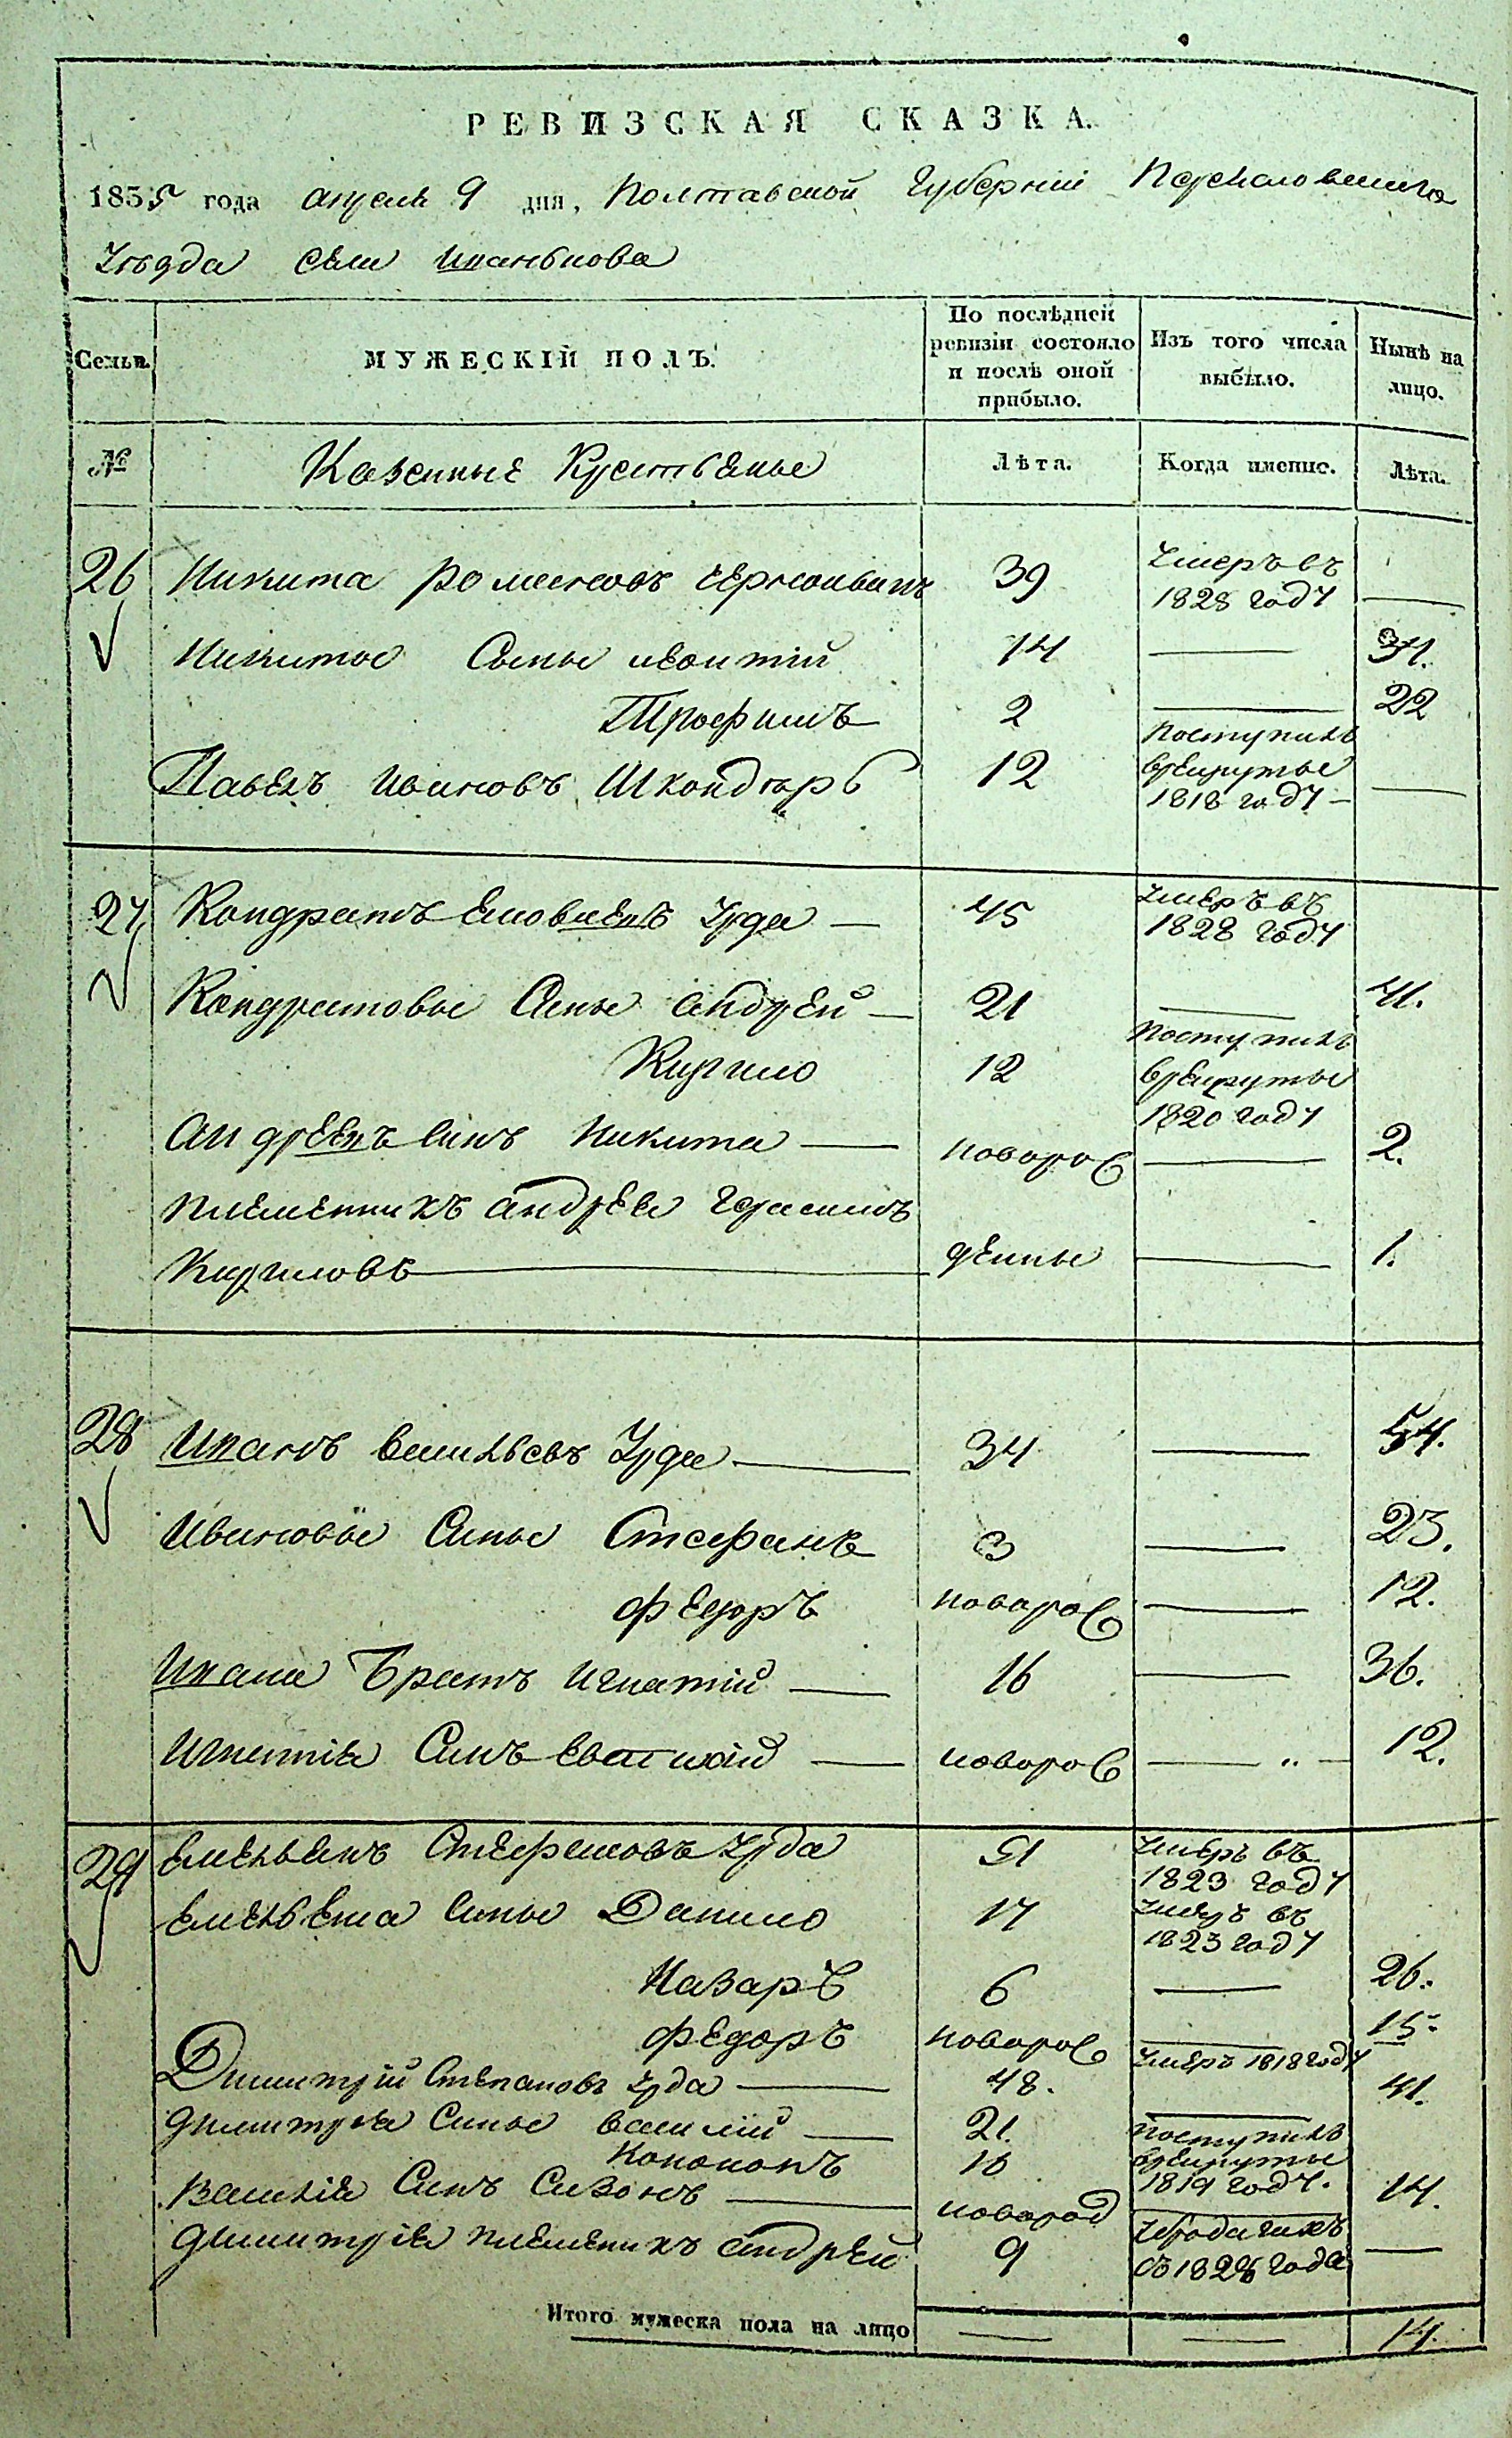 РЕВИЗСКАЯ СКАЗКА.
1835 года апреля 9 дня, Полтавской Губернии Переясловскаго
Уѣзда села Ипанькова
Семьи.
МУЖЕСКІЙ ПОЛЪ.
По послѣдней
ревизіи состояло
и послѣ оной
прибыло.
Изъ того числа
выбыло.
Нынѣ на
лицо.
№
Казенные Крестьяне
Лѣта.
Когда именно.
Лѣта.
26 Никита Романовъ 39 Умеръ въ
1828 году —
Никиты Сыны Леонтій 14 — 34.
Трофимъ 2 — 22
Павелъ Ивановъ Шкондарь 12 Поступилъ
врекруты
1818 году — —
27 Кондратъ Яковлевъ Урда — 45 Умеръ въ
1828 году
Кондратовы Сины Андрей — 21 — 41.
Кирило 12 Поступилъ
врекруты
1820 году
Андреевъ Синъ Никита — новорож — 2.
Племенникъ Андрея Герасимъ
Кириловъ — денны — 1.
28 Ипанъ Васильевъ Урда — 34 — 54.
Ивановы Сины Стефанъ 3 — 23.
Федоръ новорож — 12.
Ипана Братъ Игнатій — 16 — 36.
Игнатія Синъ Евстихій — новорож — " — 12.
29 Емельянъ Стефановъ Урда 51 Умеръ въ
1823 году
Емельяна Сины Данило 17 Умеръ въ
1823 году
Назаръ 6 — 26.
Федоръ новорож — 15.
Димитрій Степановъ Урда — 48. Умеръ 1818 году
Димитрія Сины Василій — 21. — 41.
Кононъ 18 поступилъ
врекруты
1819 году.
Василія Синъ Сазонъ — новорож — 14.
Димитрія племеникъ Андрей 9
съ 1828 года —
Итого мужеска пола на лицо — — 14.